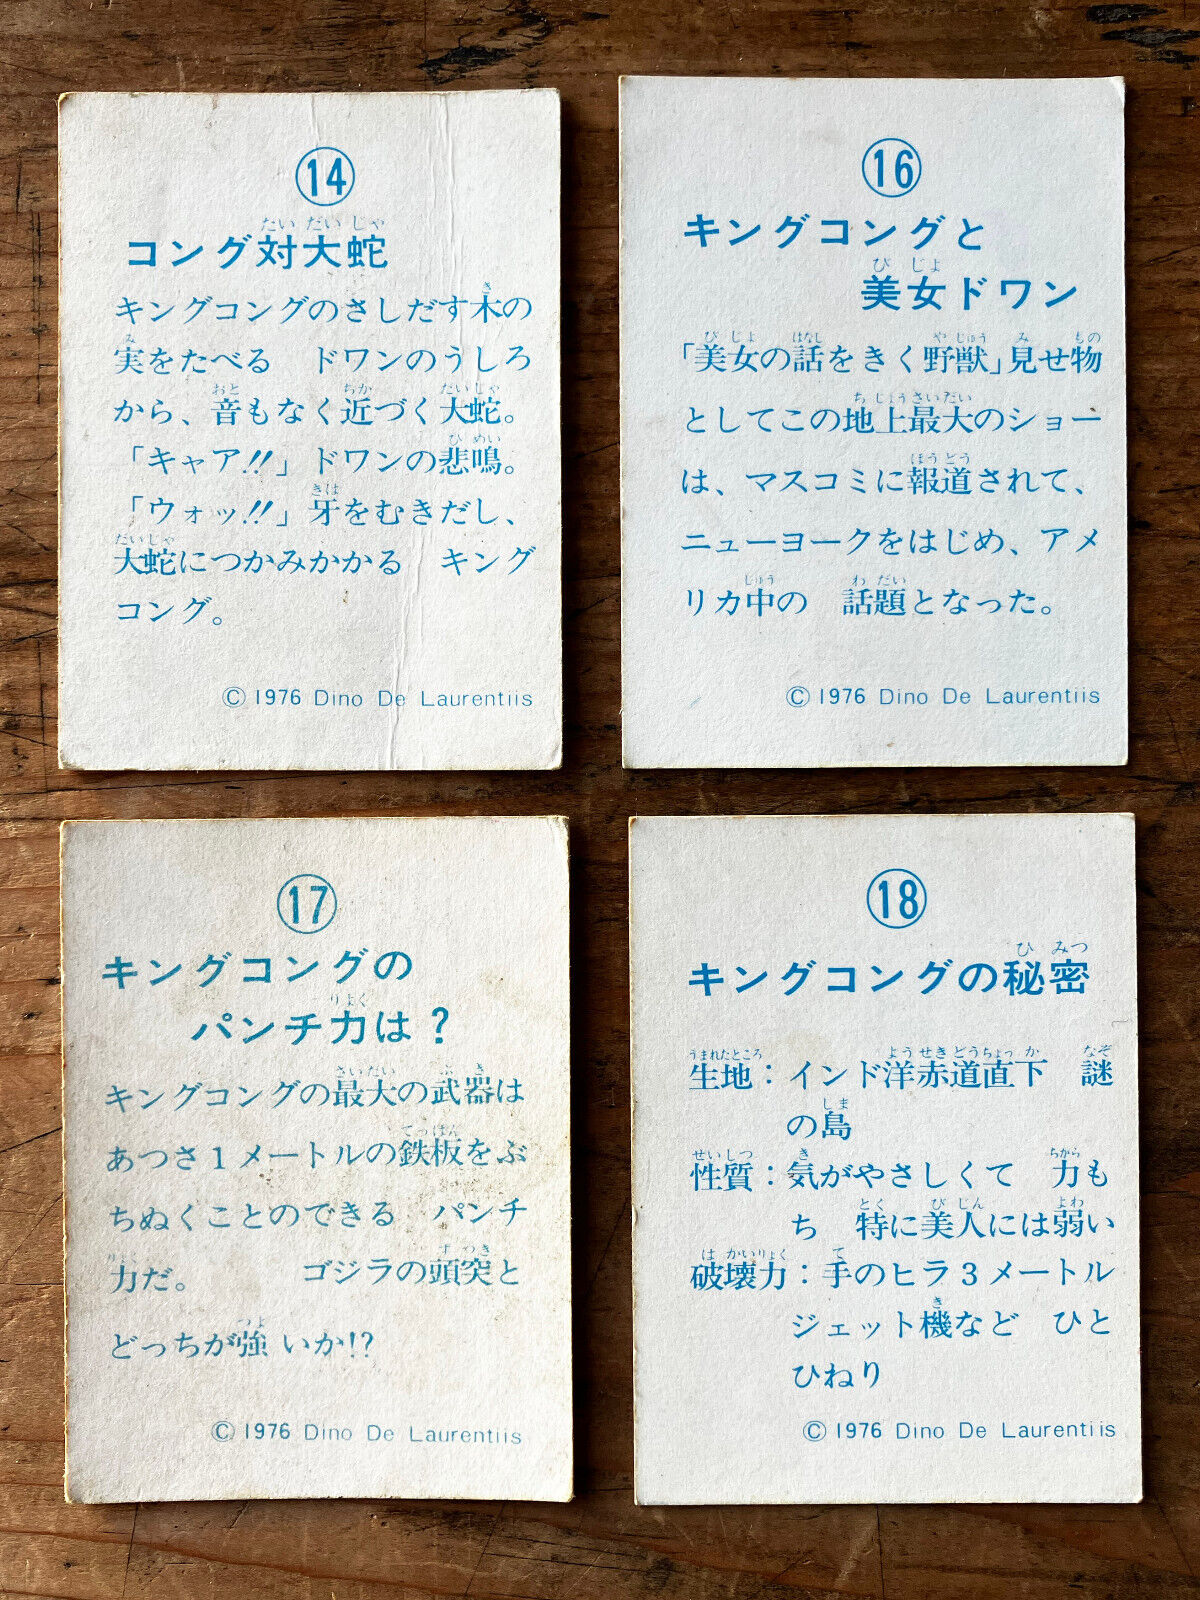 14
コング対大蛇
キングコングのさしだす木の
実をたべる　ドワンのうしろ
から、音もなく近づく大蛇。
「キャア!!」ドワンの悲鳴。
「ウォッ!!」牙をむきだし、
大蛇につかみかかる　キング
コング。
© 1976 Dino De Laurentiis
16
キングコングと
美女ドワン
「美女の話をきく野獣」見せ物
としてこの地上最大のショー
は、マスコミに報道されて、
ニューヨークをはじめ、アメ
リカ中の　話題となった。
© 1976 Dino De Laurentiis
17
キングコングの
パンチ力は？
キングコングの最大の武器は
あつさ1メートルの鉄板をぶ
ちぬくことのできる　パンチ
力だ。　　　ゴジラの頭突と
どっちが強いか!?
© 1976 Dino De Laurentiis
18
キングコングの秘密
生地：インド洋赤道直下　謎
の島
性質：気がやさしくて　力も
ち　特に美人には弱い
破壊力：手のヒラ3メートル
ジェット機など　ひと
ひねり
© 1976 Dino De Laurentiis